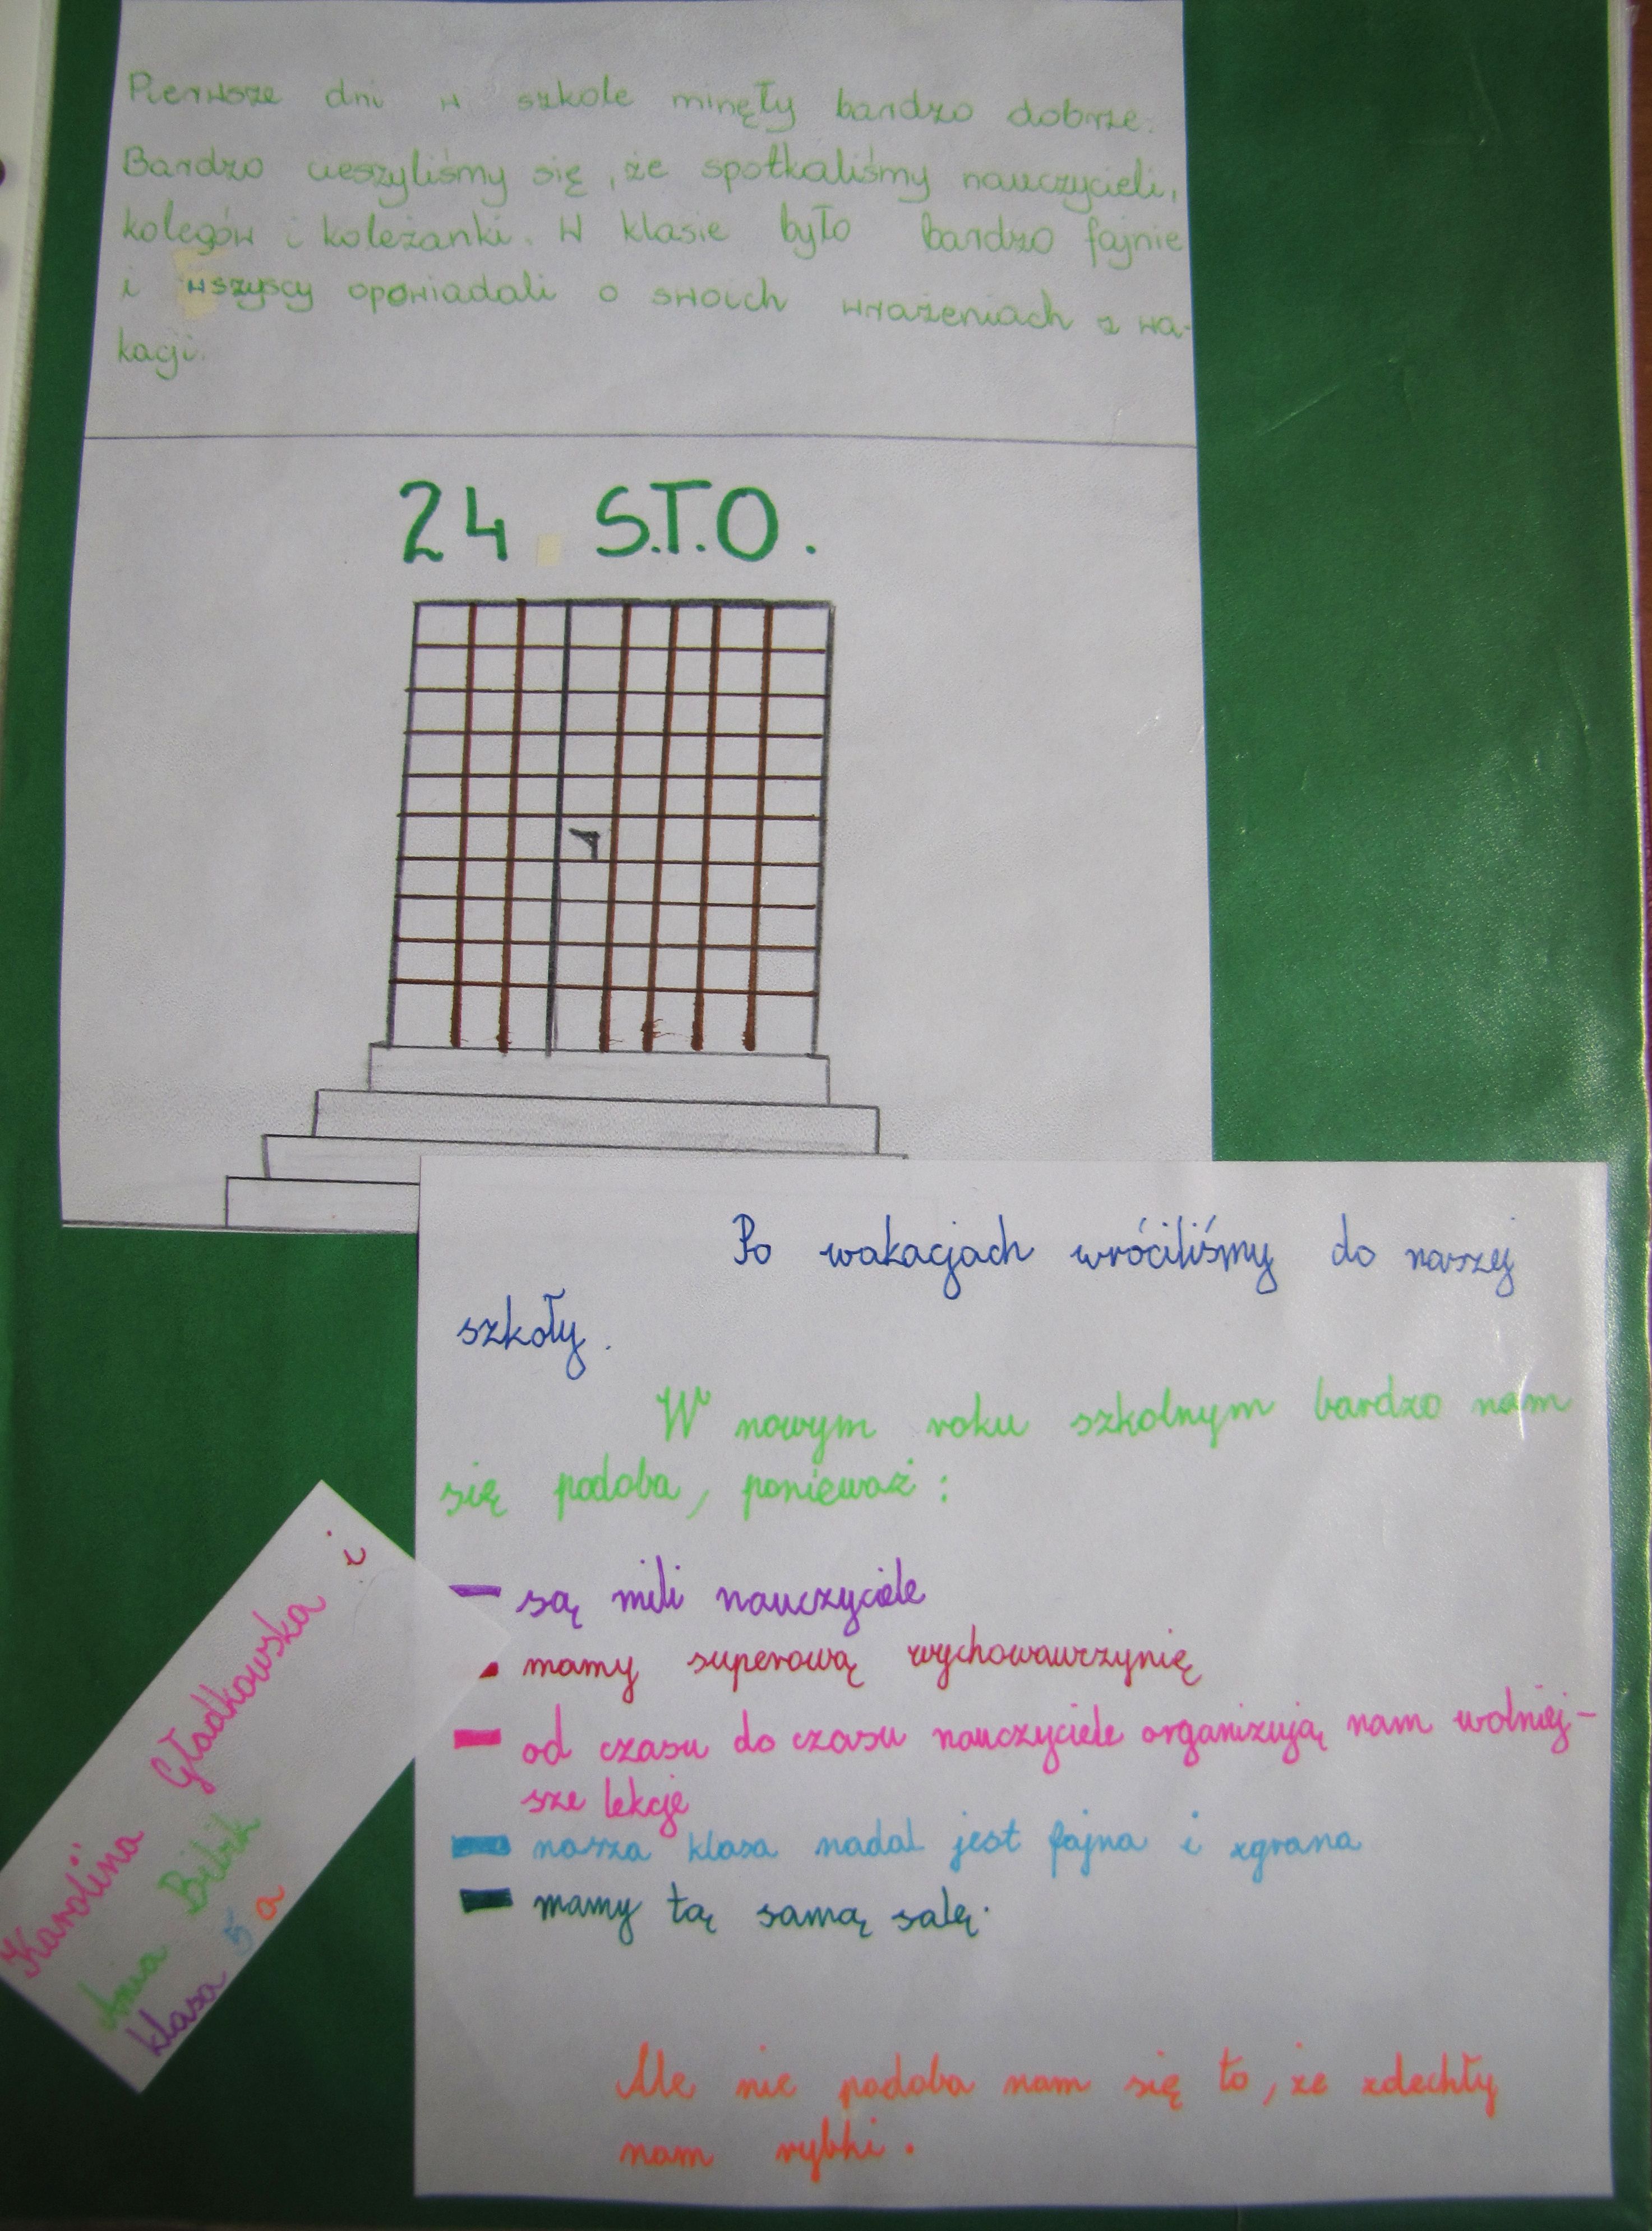 Pierwsze dni w szkole minęły bardzo dobrze.
Bardzo cieszyliśmy się, że spotkaliśmy nauczycieli,
kolegów i koleżanki. W klasie było bardzo fajnie
i wszyscy opowiadali o swoich wrażeniach z wa-
kacji.
24 S.T.O.
Po wakacjach wróciliśmy do naszej
szkoły.
W nowym roku szkolnym bardzo nam
się podoba, ponieważ:
- są mili nauczyciele
- mamy superową wychowawczynię
- od czasu do czasu nauczyciele organizują nam wolniej-
sze lekcje
- nasza klasa nadal jest fajna i zgrana
- mamy tą samą salę.
Ale nie podoba nam się to, że zdechły
nam rybki.
Karolina Gładkowska i
Ania
klasa 5 a